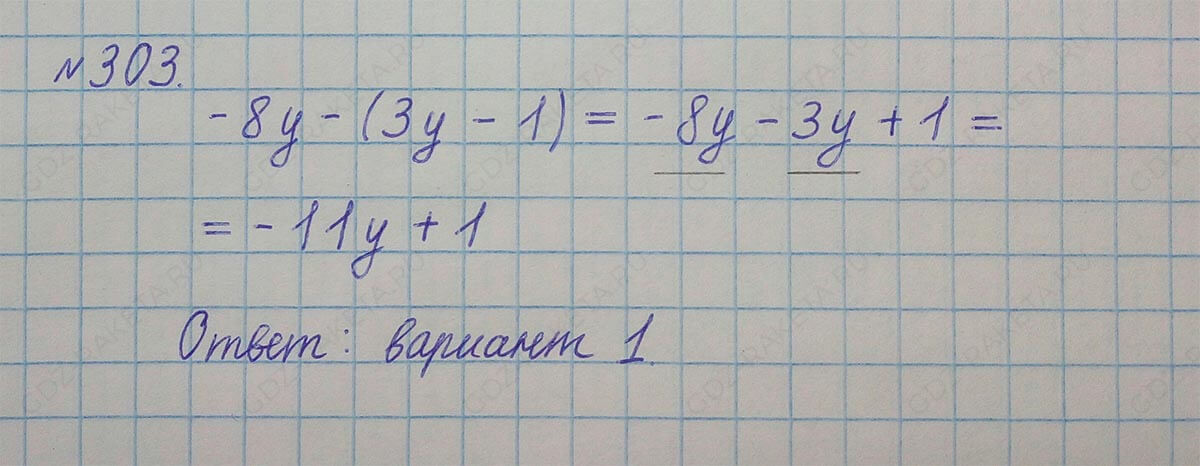 №303.
-8y - (3y - 1) = -8y - 3y + 1 =
= -11y + 1
Ответ: вариант 1.